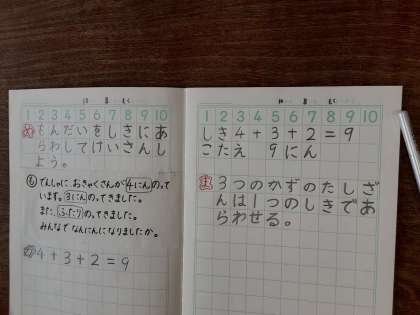 1 2 3 4 5 6 7 8 9 10
め もんだいをしきにあ
らわしてけいさんし
よう。
も でんしゃに おきゃくさんが 4にん のって
います。3にん のってきました。
また、ふたり のってきました。
みんなで なんにんに なりましたか。
4+3+2=9
1 2 3 4 5 6 7 8 9 10
しき 4+3+2=9
こたえ 9にん
ま 3つのかずのたしざ
んは1つのしきであ
らわせる。